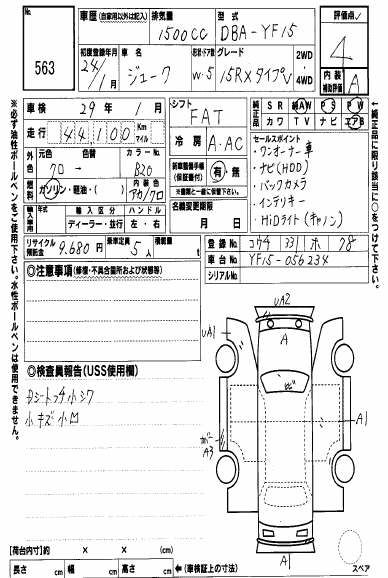 No.
563
車歴 (自家用以外は記入)
排気量
1500 CC
型式
DBA-YF15
評価点
4
初度登録年月
24/1月
車名
ジューク
形状・ドア数
W・5
グレード
15RXタイプV
2WD・4WD
内装補助評価
A
車検 29年 1月
シフト
FAT
純正品
SR 純AW PS PW
カワ TV ナビ エアB
走行 44100 Km マイル
冷房
A・AC
外色
元色
クロ →
色替
カラーNo.
B20
燃料
ガソリン・軽油・( )
内装色
アカ/クロ
新車整備手帳(保証書付)
有・無
※書類と一緒に保管下さい。
セールスポイント
・ワンオーナー車
・ナビ(HDD)
・バックカメラ
・インテリキー
・HiDライト(キャノン)
輸入車用
年式
輸入区分
ディーラー・並行
ハンドル
左・右
名義変更期限
月 日
リサイクル預託金
9.680円
乗車定員
5人
積載量
t
登録No.
車台No.
YF15-056234
シリアルNo.
◎注意事項(修復・不具合箇所および状態等)
◎検査員報告(USS使用欄)
小キズ小凹
UA2
UA1
A
A1
A3
A
スペア
【荷台内寸】約 × × (cm)
長さ cm 幅 cm 高さ cm ←(車検証上の寸法)
※必ず油性ボールペンをご使用下さい。水性ボールペンは使用できません。
←純正品に限り該当に○をつけて下さい。